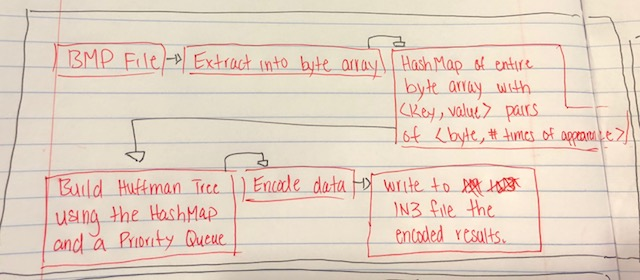 BMP File
Extract into byte array
HashMap of entire
byte array with
<Key, value> pairs
of <byte, # times of appearance>
Build Huffman Tree
using the HashMap
and a Priority Queue
Encode data
write to
IN3 file the
encoded results.